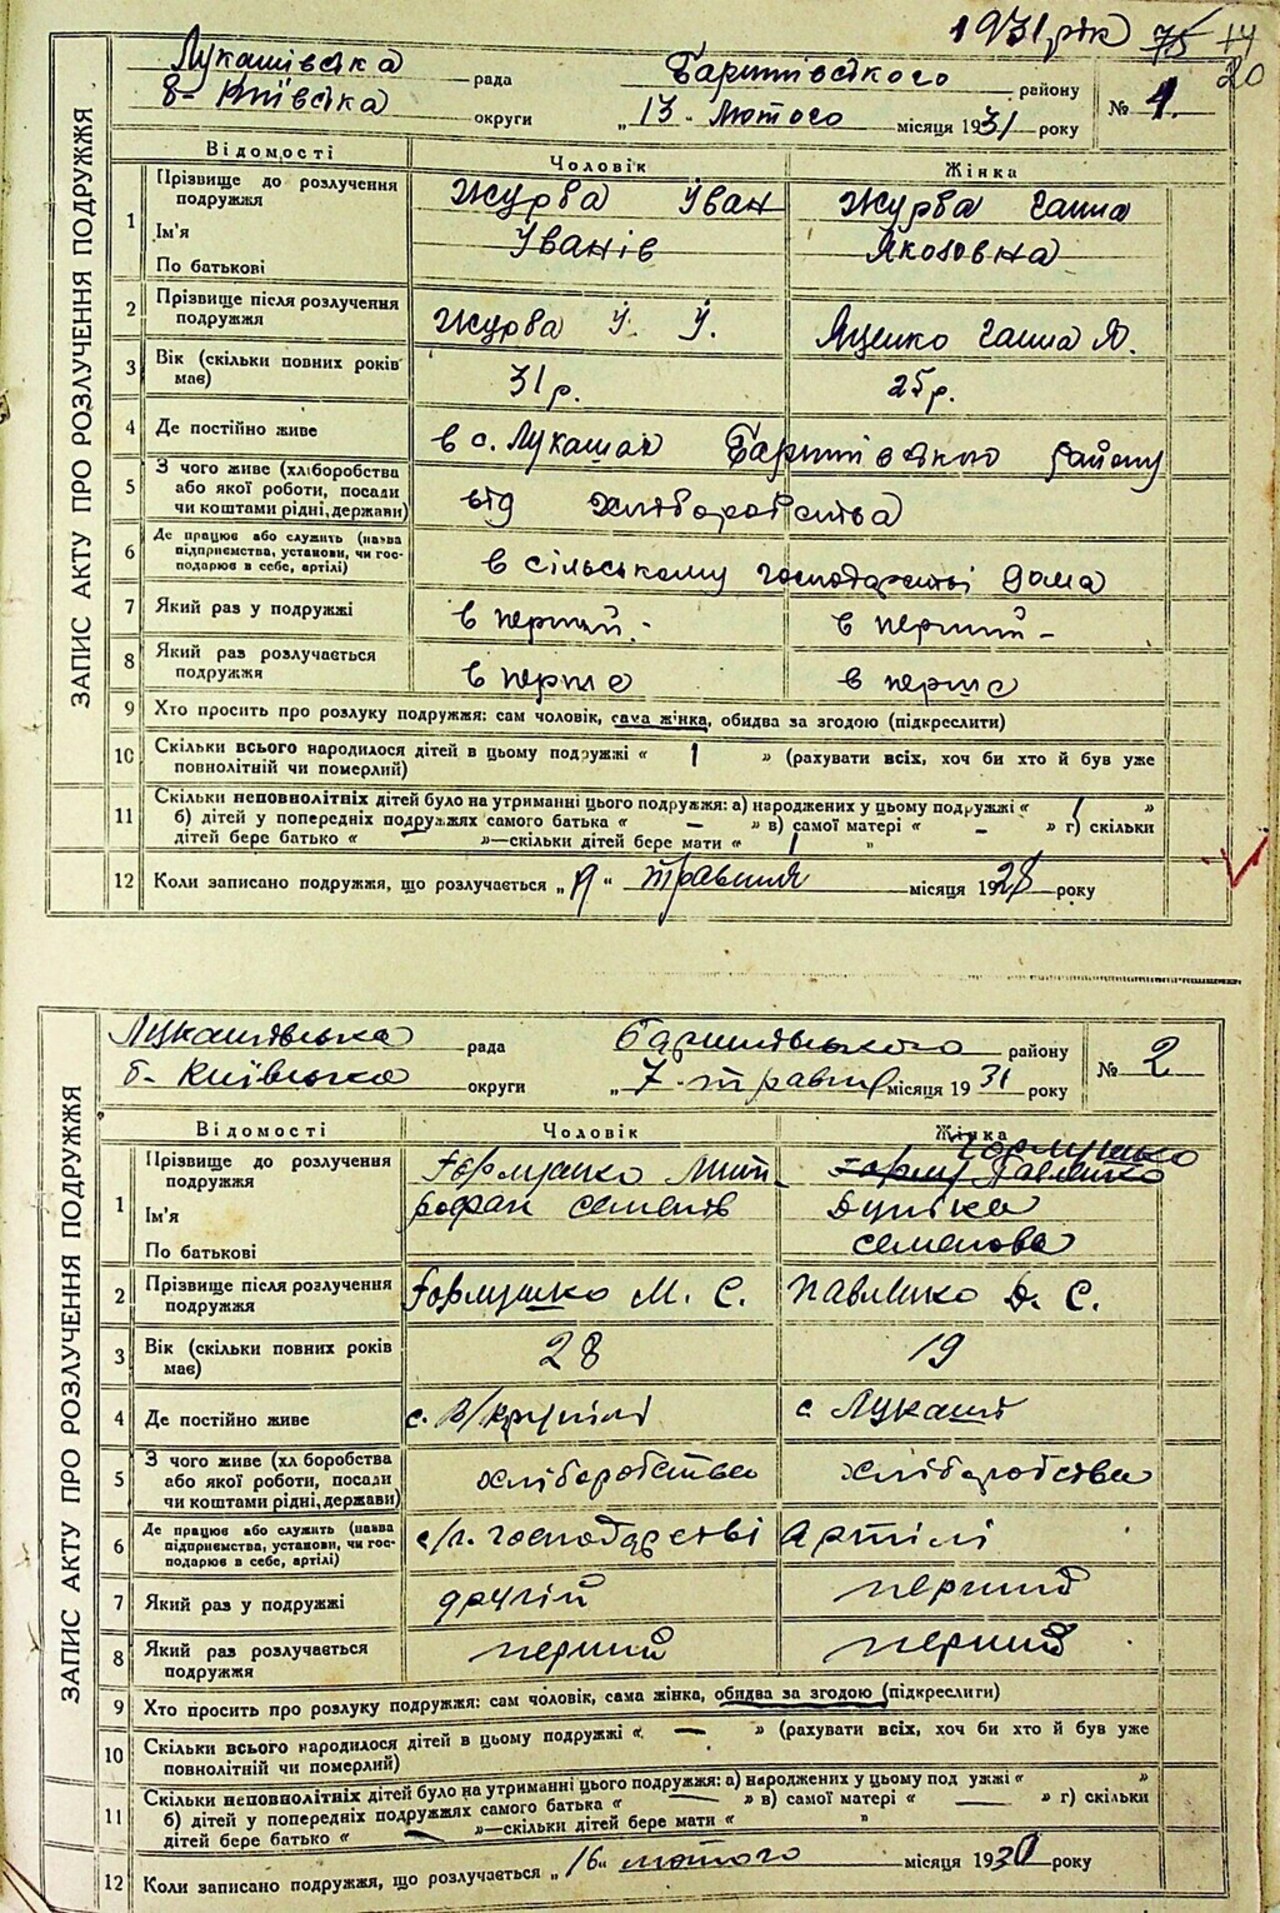 1931 рік 75 14
20
ЗАПИС АКТУ ПРО РОЗЛУЧЕННЯ ПОДРУЖЖЯ
Лукашівська рада Баришівського району № 1.
б-Київська округи „13" лютого місяця 1931 року
Відомості Чоловік Жінка
1 Прізвище до розлучення подружжя Журба Іван Журба Ганна
Ім'я Іванів Якововна
По батькові
2 Прізвище після розлучення подружжя Журба І. І. Яценко Ганна Я.
3 Вік (скільки повних років має) 31 р. 25 р.
4 Де постійно живе в с. Лукашах Баришівського району
5 З чого живе (хліборобства або якої роботи, посади чи коштами рідні, держави) від хліборобства
6 Де працює або служить (назва підприємства, установи, чи господарює в себе, артілі) в сільському господарстві дома
7 Який раз у подружжі в перший - в перший -
8 Який раз розлучається подружжя в перше в перше
9 Хто просить про розлуку подружжя: сам чоловік, сама жінка, обидва за згодою (підкреслити)
10 Скільки всього народилося дітей в цьому подружжі « 1 » (рахувати всіх, хоч би хто й був уже
повнолітній чи померлий)
11 Скільки неповнолітніх дітей було на утриманні цього подружжя: а) народжених у цьому подружжі « 1 »
б) дітей у попередніх подружжях самого батька « — » в) самої матері « — » г) скільки
дітей бере батько « »—скільки дітей бере мати « 1 »
12 Коли записано подружжя, що розлучається „ " травня місяця 1928 року
ЗАПИС АКТУ ПРО РОЗЛУЧЕННЯ ПОДРУЖЖЯ
Лукашівська рада Баришівського району № 2
б-Київсько округи „7" травня місяця 1931 року
Відомості Чоловік Жінка
Гормушко
1 Прізвище до розлучення подружжя Гормушко Мит- Горму Павленко
Ім'я рофан Семенів Дунька
По батькові Семенова
2 Прізвище після розлучення подружжя Гормушко М. С. Павленко Д. С.
3 Вік (скільки повних років має) 28 19
4 Де постійно живе с. В/Крупілі с Лукаші
5 З чого живе (хліборобства або якої роботи, посади чи коштами рідні, держави) хліборобства хліборобства
6 Де працює або служить (назва підприємства, установи, чи господарює в себе, артілі) с/г. господарстві Артілі
7 Який раз у подружжі другій перший
8 Який раз розлучається подружжя перший перший
9 Хто просить про розлуку подружжя: сам чоловік, сама жінка, обидва за згодою (підкреслити)
10 Скільки всього народилося дітей в цьому подружжі « — » (рахувати всіх, хоч би хто й був уже
повнолітній чи померлий)
11 Скільки неповнолітніх дітей було на утриманні цього подружжя: а) народжених у цьому подружжі « »
б) дітей у попередніх подружжях самого батька « — » в) самої матері « — » г) скільки
дітей бере батько « — »—скільки дітей бере мати « »
12 Коли записано подружжя, що розлучається „16" лютого місяця 1930 року